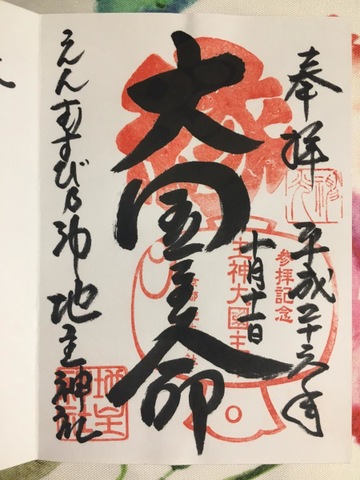 奉拝
平成二十六年
十月十一日
大国主命
えんむすびの神
地主神社
参拝記念
地主
神社